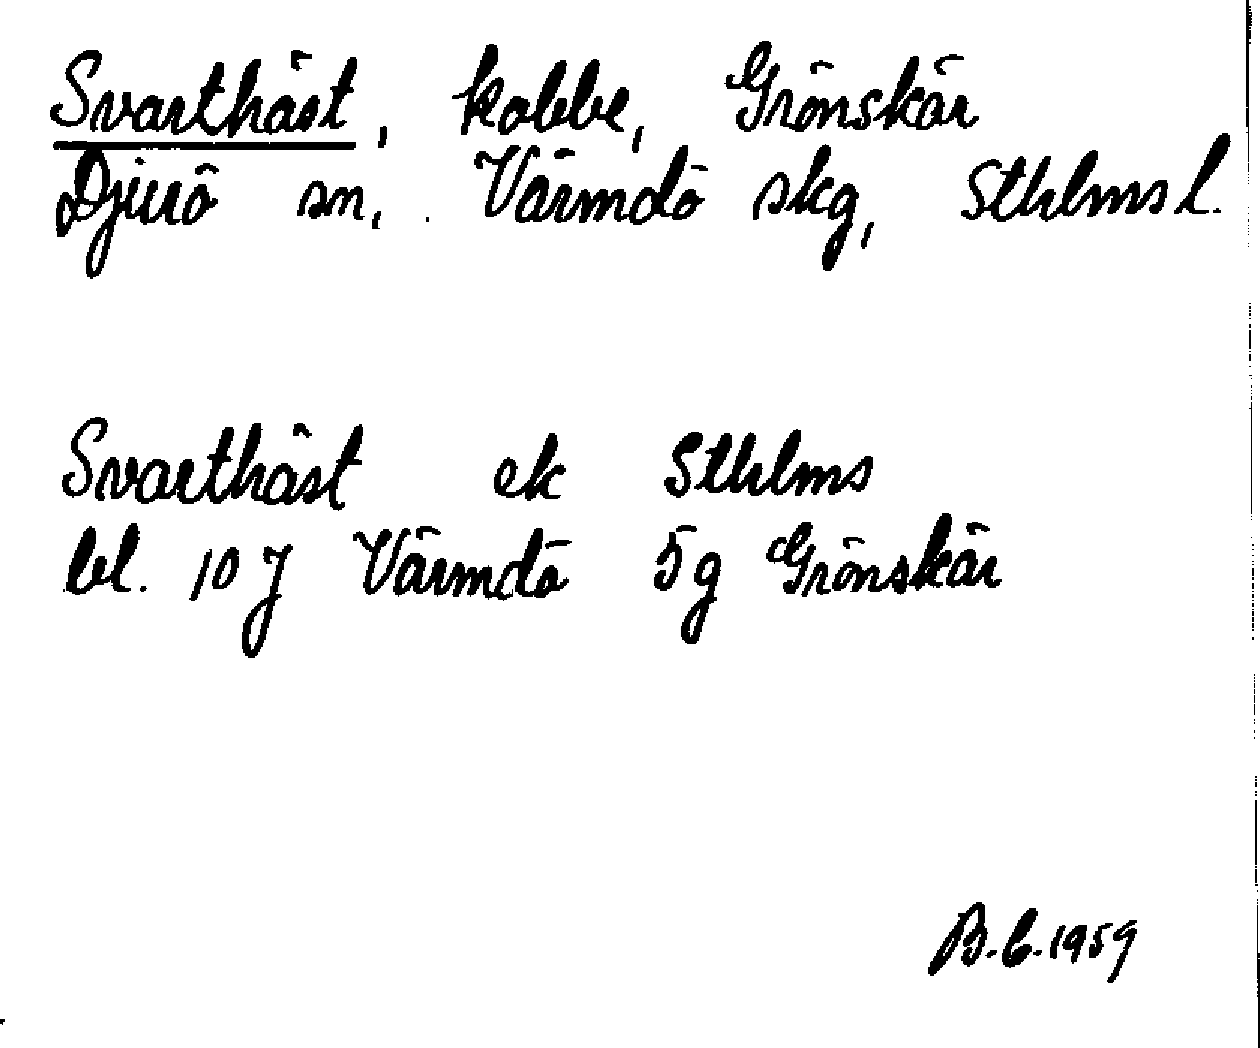 Svarthäst, kobbe, Grönskär
Djurö sn, Värmdö skg, Sthlms l.
Svarthäst ek Sthlms
bl. 10 J Värmdö 5g Grönskär
B.C.1959